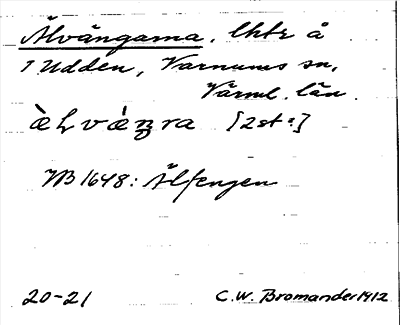 Älvängarna. lhtr å
1 Udden, Varnums sn,
Värml. län.
[2 st.]
JB 1648: Älfengen
20-21 C. W. Bromander 1912